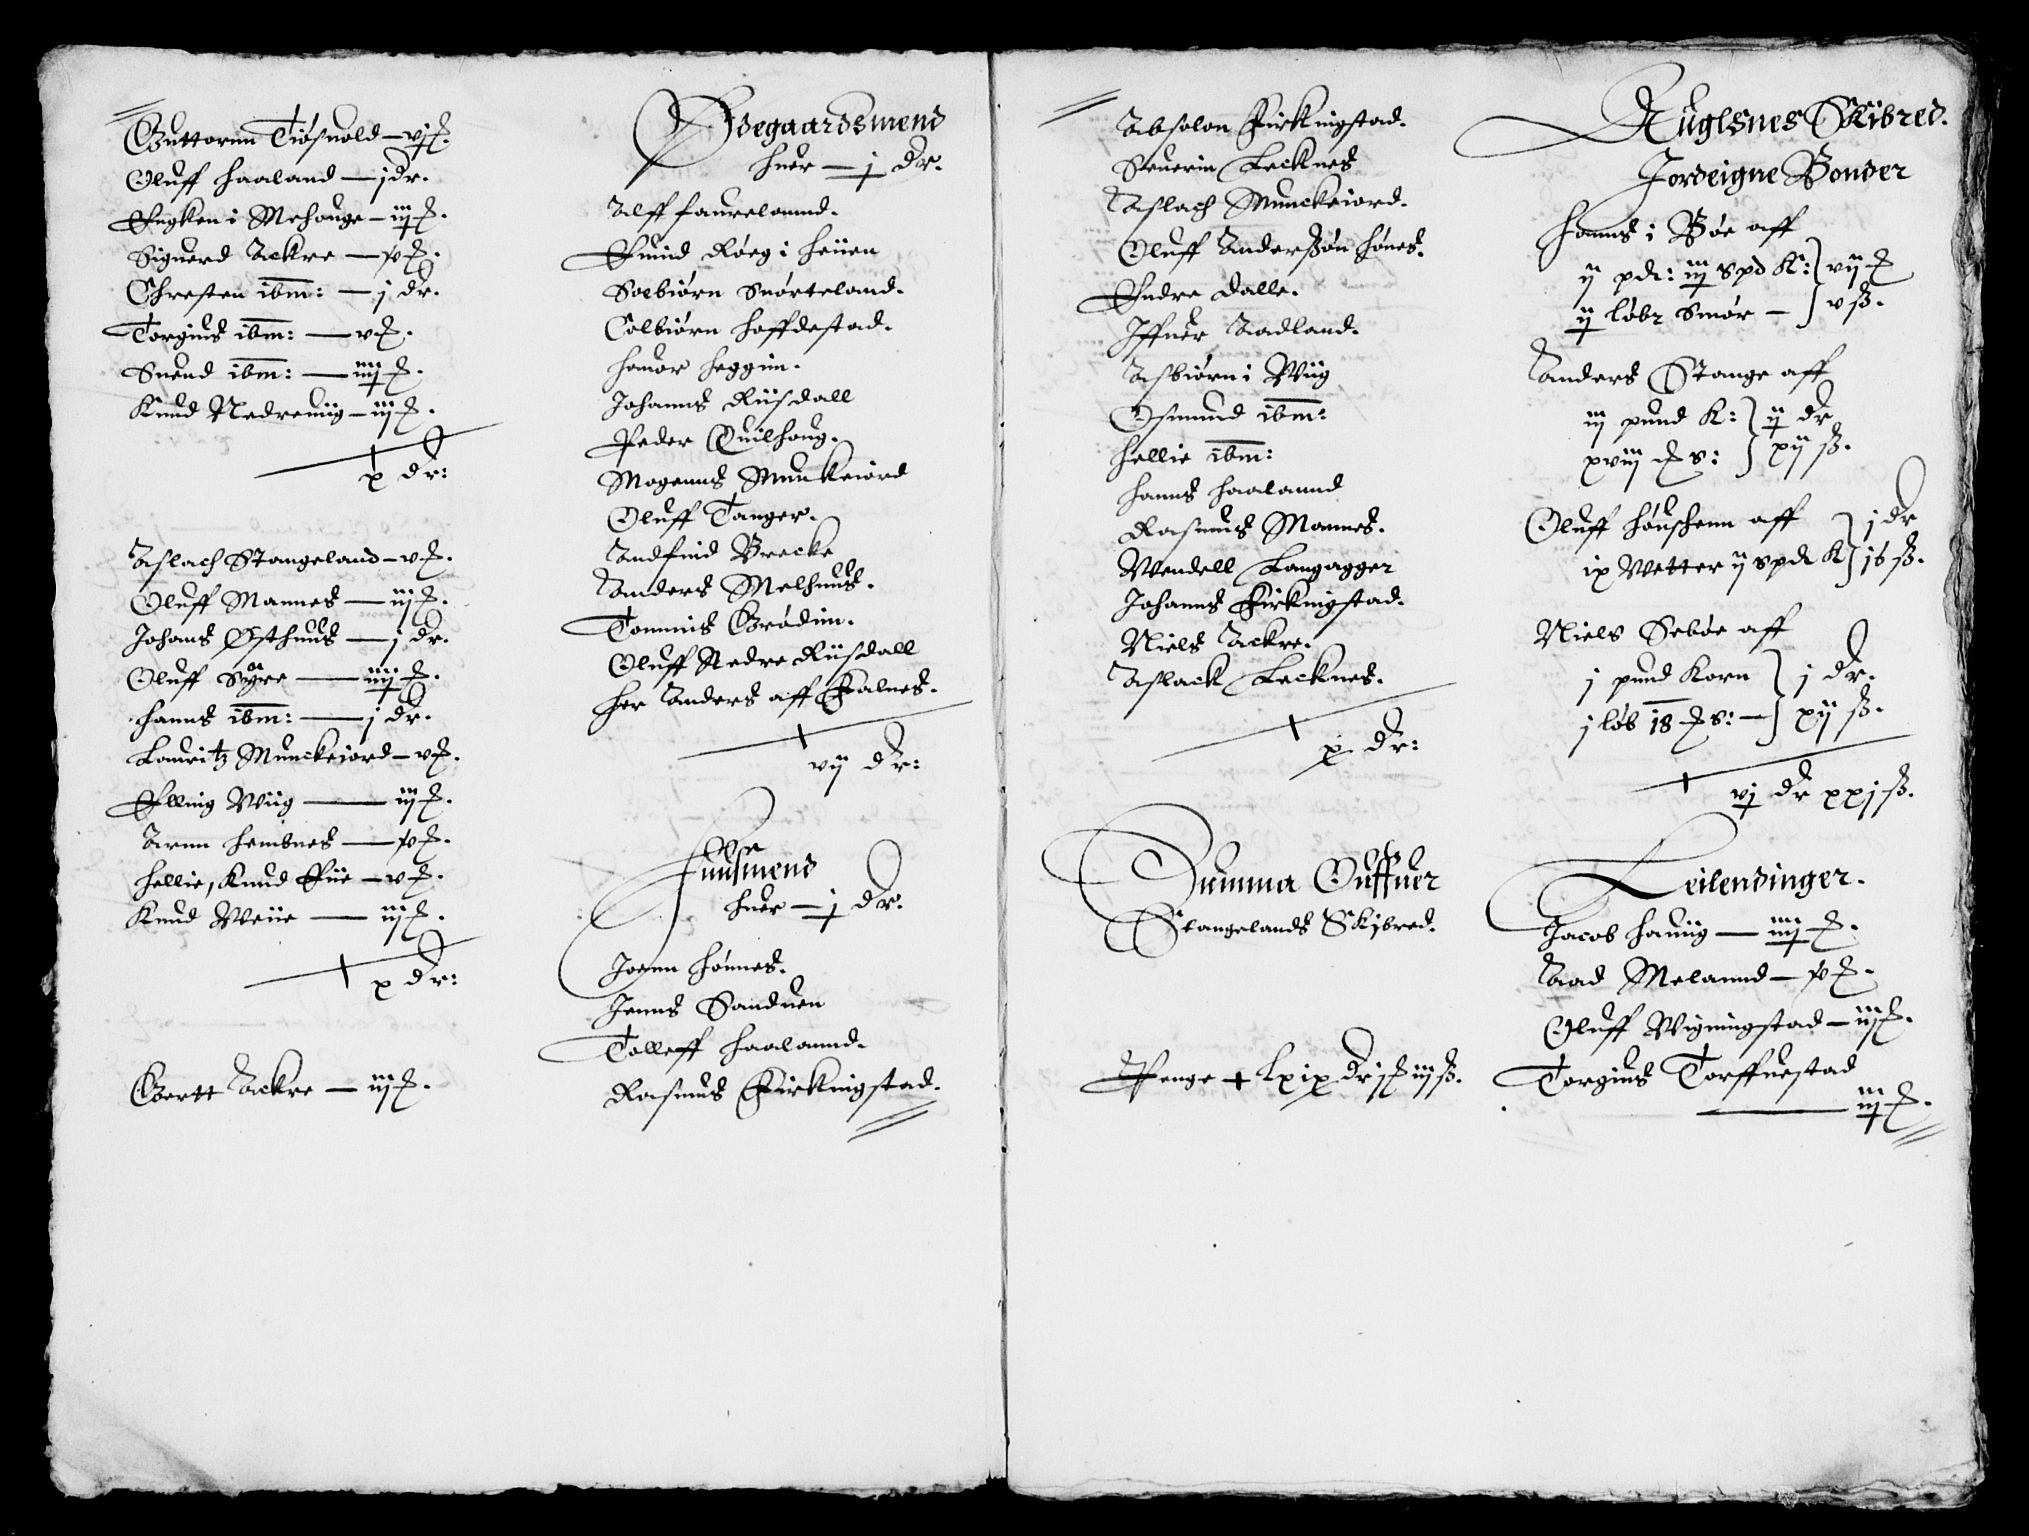 Guttorim Tiøsuold – vj ₰.
Oluff Haaland – j dr.
Engken i Mehouge – iij ₰.
Siguerd Ackre – ₰.
Chresten ibm: – j dr.
Torgius ibm: – v ₰.
Suend ibm: – iiij ₰.
Knud Nedreuiig – iij ₰.
x dr:
Aslach Stangeland – v ₰.
Oluff Mannes – iij ₰.
Johans Østhuus – j dr.
Oluff Syre – iiij ₰.
Hanns ibm: – j dr.
Lauritz Munckeiord – v ₰.
Elling Wiig – iij ₰.
Arnn Hemsnes – ₰.
Hellie, Knud Eiie – v ₰.
Knud Weiie – iij ₰.
x dr:
Giertt Ackre – iij ₰.
Ødegaardsmend
huer – j dr.
Alff faurelannd.
Emind Røeg i Heiien
Solbiørn Snørteland.
Colbiørn Hoffdestad.
Homor Heggim.
Johanns Riisdall
Peder Quilhoug.
Mogenns Munckeiord
Oluff Tanger.
Andfind Brecke
Anders Melhuus.
Tommis Grødim.
Oluff Nedre Riisdall
Her Anders aff Falnes.
vij dr:
Huusmend
huer – j dr.
Joenn Hønnes.
Jenns Sanduen
Tolleff Haalannd.
Rasmus Ferkingstad.
Absolon Ferkingstad.
Seuerin Lecknes
Aslach Munckeiord.
Oluff Anderssøn Hønes.
Endre Dalle.
Iffuer Aadland.
Asbiørn i Wiig
Osmund ibm:
Hellie ibm:
Hanns Haalannd
Rasmus Mannes.
Wendell Langagger
Johanns Ferkingstad.
Niels Ackre.
Aslack Lecknes.
x dr:
Summa Ouffuer
Stangelands Skibred.
Penge + lxix dr j ₰ iij ß.
Auglsnes Skibred.
Jordeigne Bonder
Hanns i Bøe aff
ij pd: iiij spd K: } vij ₰
ij løbr Smør – } v ß.
Anders Stange aff
iij pund K: } ij dr
xviij ₰ s: } xij ß.
Oluff Høushenn aff } j dr
ix Wetter ij spd K } 16 ß.
Niels Sebøe aff
j pund Korn } j dr.
j løb 18 ₰ s: – } xij ß.
vj dr xxj ß.
Leilendinger.
Jacob Hauiig – iiij ₰.
Aad Melannd – ₰.
Oluff Wigningstad – iij ₰.
Torgius Torffuestad
– iij ₰.